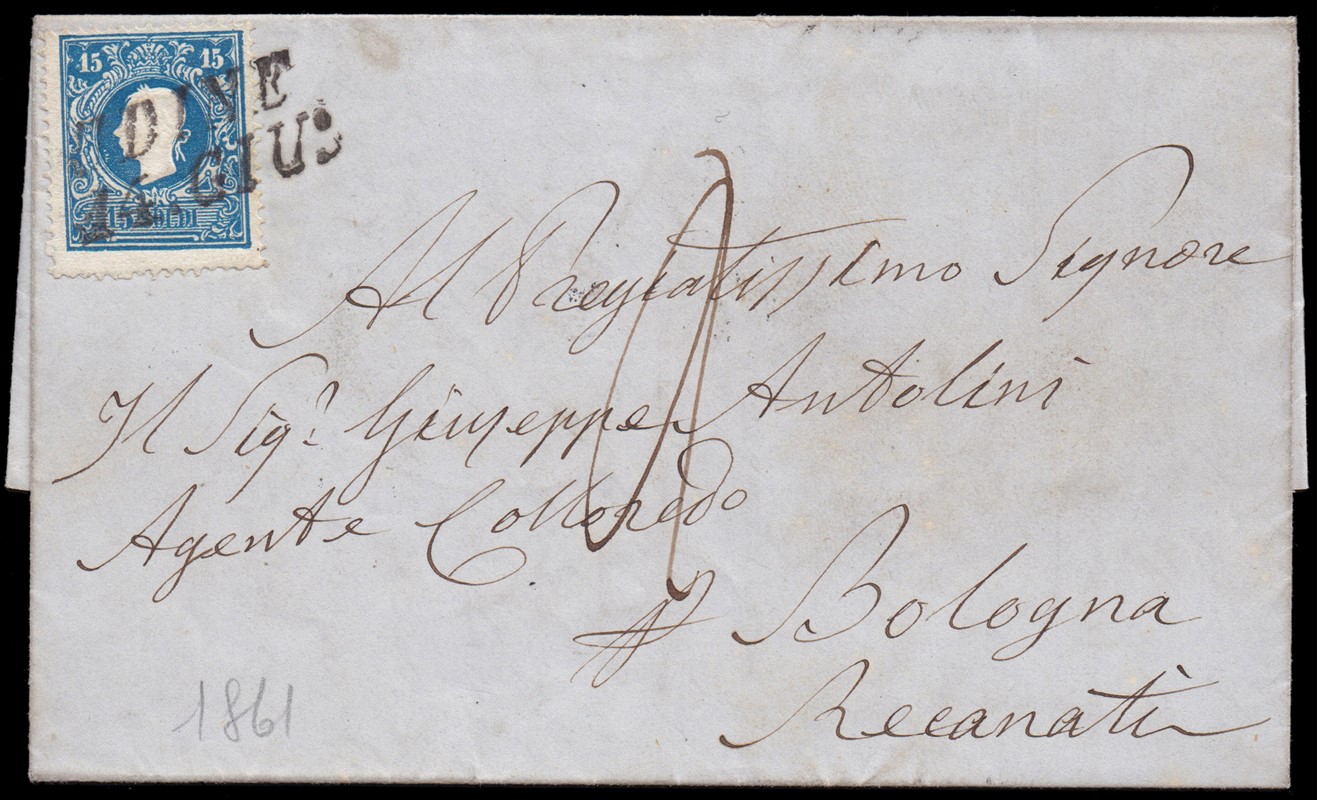 15 15
15 SOLDI
UDINE
GIU:
Al Pregiatissimo Signore
Il Sigr. Giuseppe Antolini
Agente Colloredo
p Bologna
Recanati
1861